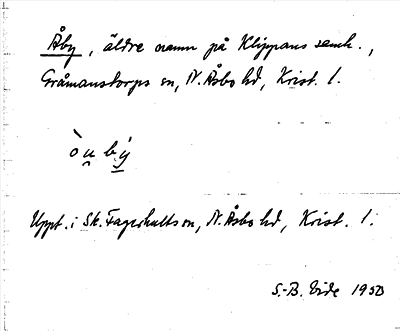 Åby, äldre namn på Klippans samh.,
Gråmanstorps sn, N. Åsbo hd, Krist. l.
òu̯bý
Uppt. i Sk. Fagerhults sn, N. Åsbo hd, Krist. l.
S.-B. Vide 1950